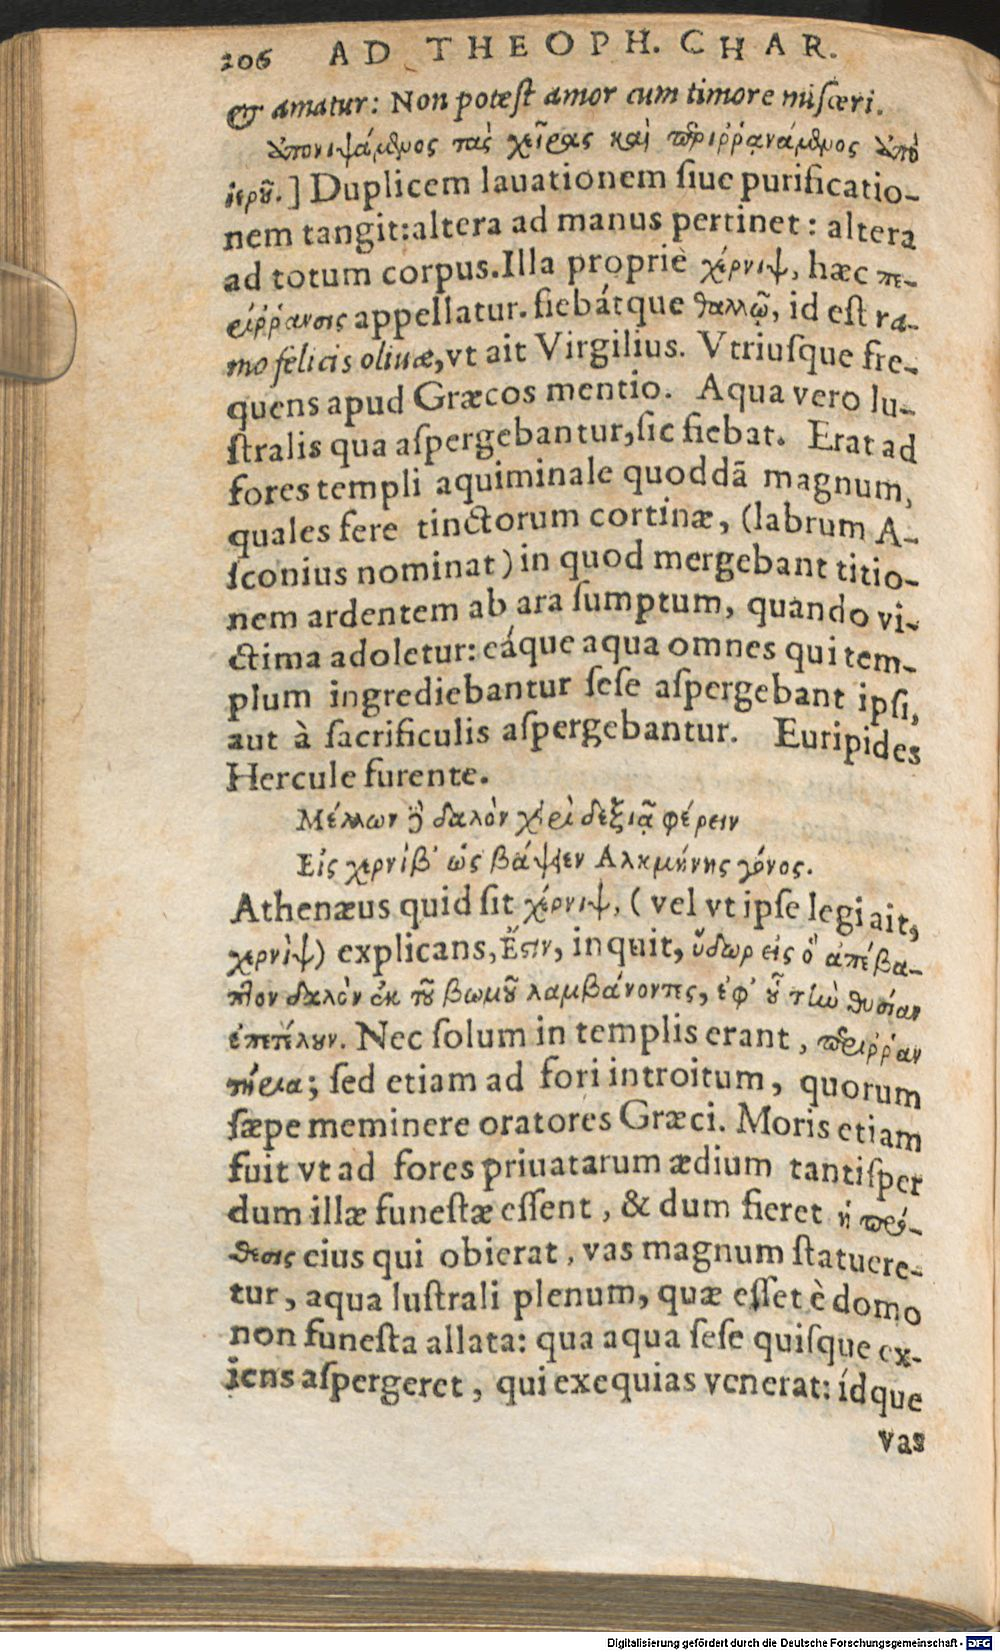 206 AD THEOPH. CHAR.
& amatur: Non potest amor cum timore misceri.
ἀπονιψάμενος τὰς χεῖρας καὶ περιῤῥανάμενος ἀπὸ
ἱεροῦ.] Duplicem lauationem siue purificatio-
nem tangit: altera ad manus pertinet: altera
ad totum corpus. Illa propriè χέρνιψ, hæc πε-
είῤῥανσις appellatur. fiebátque θαλλῷ, id est ra-
mo felicis oliuæ, vt ait Virgilius. Vtriusque fre-
quens apud Græcos mentio. Aqua vero lu-
stralis qua aspergebantur, sic fiebat. Erat ad
fores templi aquiminale quoddã magnum,
quales fere tinctorum cortinæ, (labrum A-
sconius nominat) in quod mergebant titio-
nem ardentem ab ara sumptum, quando vi-
ctima adoletur: eáque aqua omnes qui tem-
plum ingrediebantur sese aspergebant ipsi,
aut à sacrificulis aspergebantur. Euripides
Hercule furente.
Μέλλων δὲ δαλὸν χειρὶ δεξιᾷ φέρειν
Εἰς χερνίβ' ὡς βάψειεν Αλκμήνης γόνος.
Athenæus quid sit χέρνιψ, (vel vt ipse legi ait,
χερνὶψ) explicans, Ἔστιν, inquit, ὕδωρ εἰς ὃ ἀπέβα-
πτον δαλὸν ἐκ τοῦ βωμοῦ λαμβάνοντες, ἐφ' οὗ τὴν θυσίαν
ἐπετέλουν. Nec solum in templis erant, περιῤῥαν
τήρια; sed etiam ad fori introitum, quorum
sæpe meminere oratores Græci. Moris etiam
fuit vt ad fores priuatarum ædium tantisper
dum illæ funestæ essent, & dum fieret ἡ πρό-
θεσις eius qui obierat, vas magnum statuere-
tur, aqua lustrali plenum, quæ esset è domo
non funesta allata: qua aqua sese quisque ex-
iens aspergeret, qui exequias venerat: ídque
vas
Digitalisierung gefördert durch die Deutsche Forschungsgemeinschaft - DFG